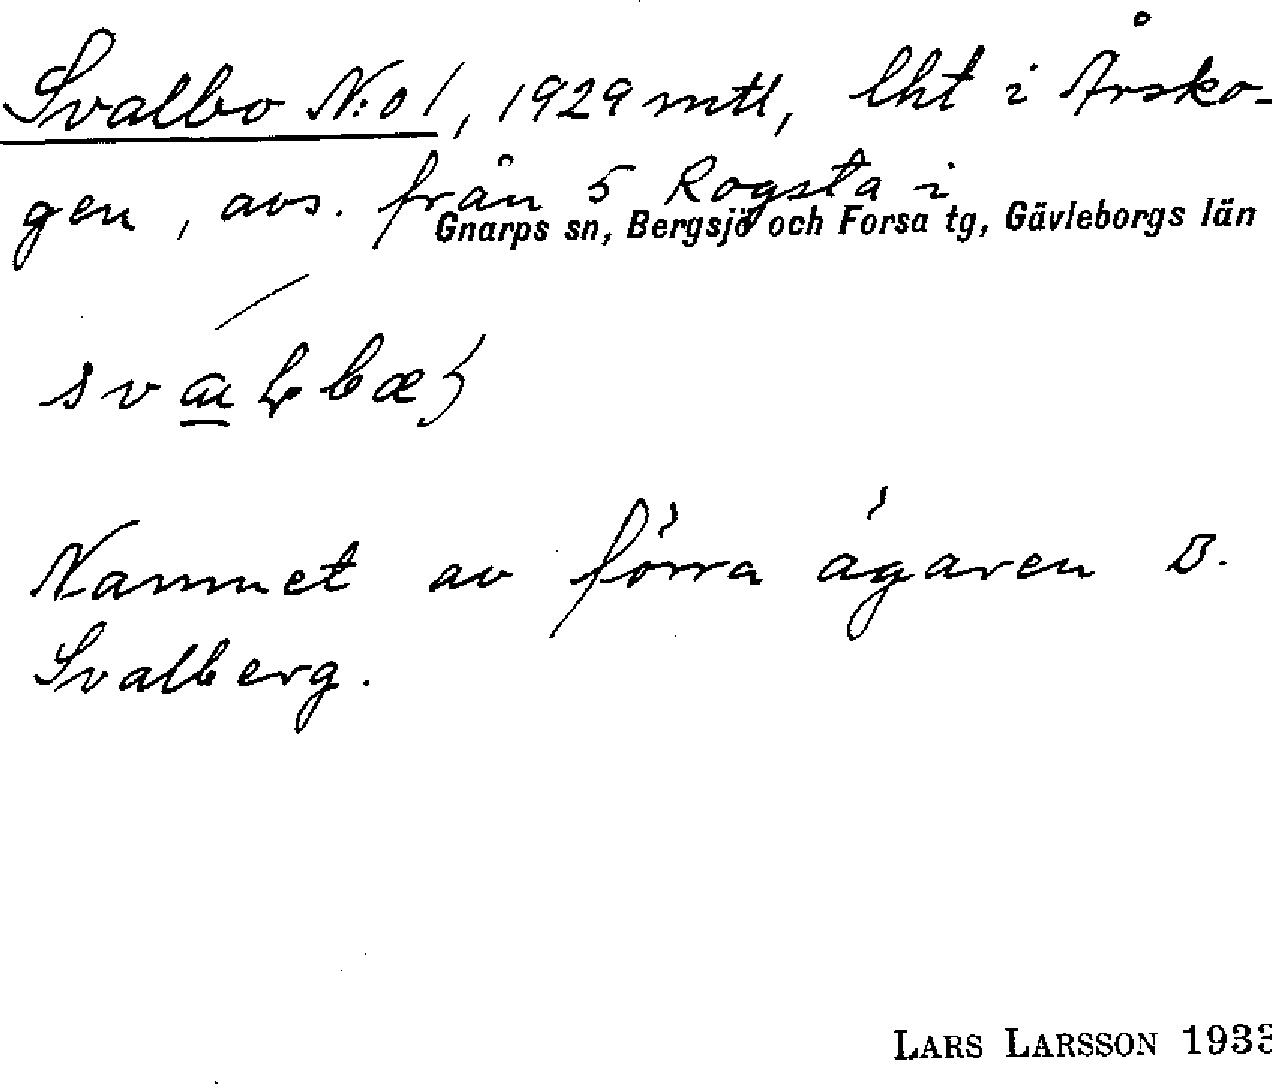 Svalbo N:o 1, 1929 mtl, lht i Årsko-
gen, avs. från 5 Rogsta i
Gnarps sn, Bergsjö och Forsa tg, Gävleborgs län
Namnet av förra ägaren
Svalberg.
LARS LARSSON 1933